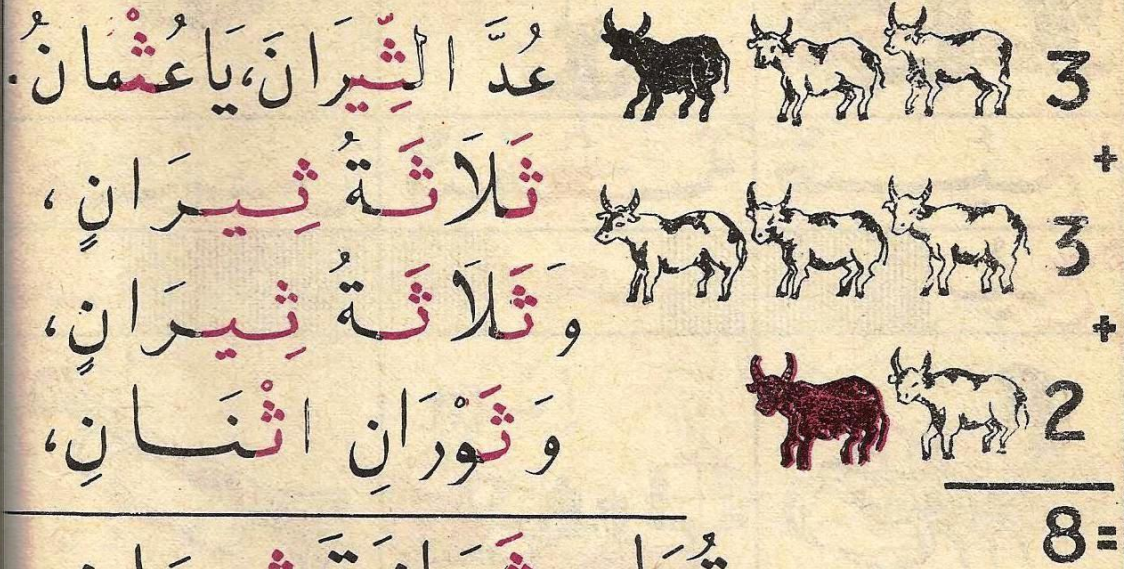 عُدَّ الثِّيرَانَ، يَا عُثْمانُ.
3
+
ثَلاَثَةُ ثِيرَانٍ،
3
+
وَثَلاَثَةُ ثِيرَانٍ،
2
وَثَوْرَانِ اثْنَانِ،
8=